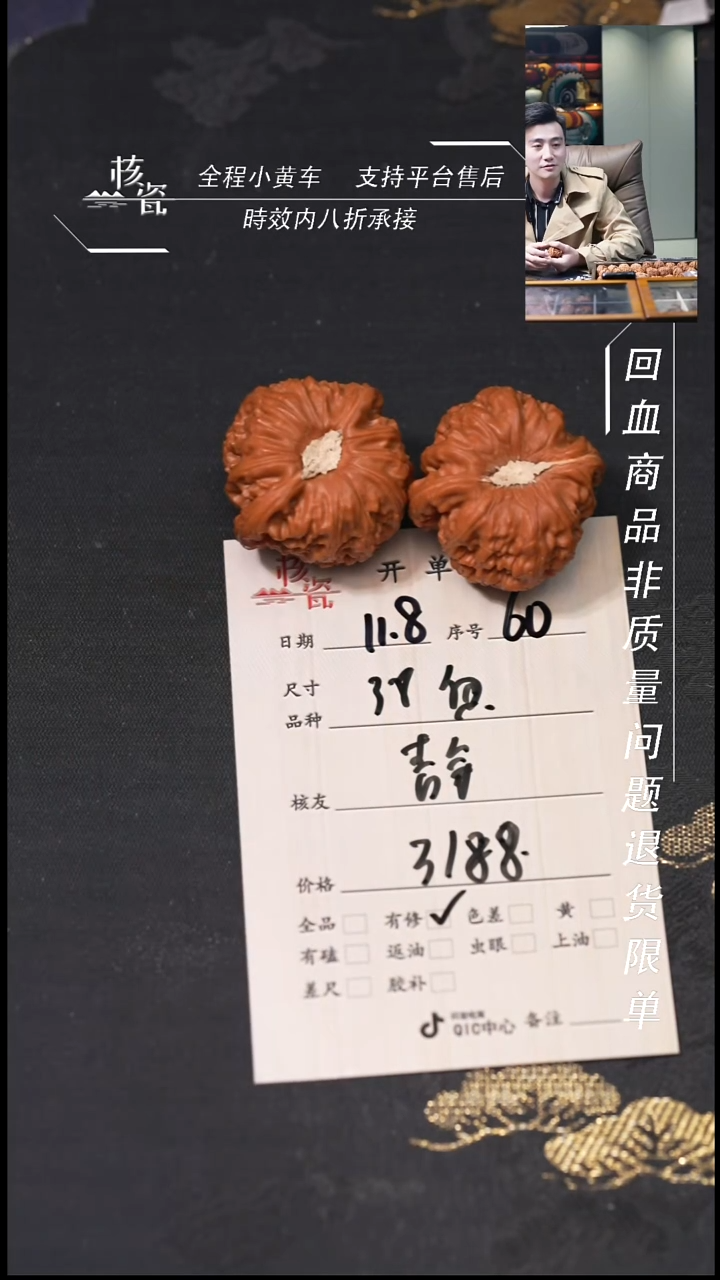 核瓷
全程小黄车 支持平台售后
時效内八折承接
回血商品非质量问题退货限单
核瓷 开单
日期 11.8 序号 60
尺寸
品种
核友 静
价格 3188.
全品 有修 ✓ 色差 黄
有磕 返油 虫眼 上油
差尺 胶补
QIC中心 备注